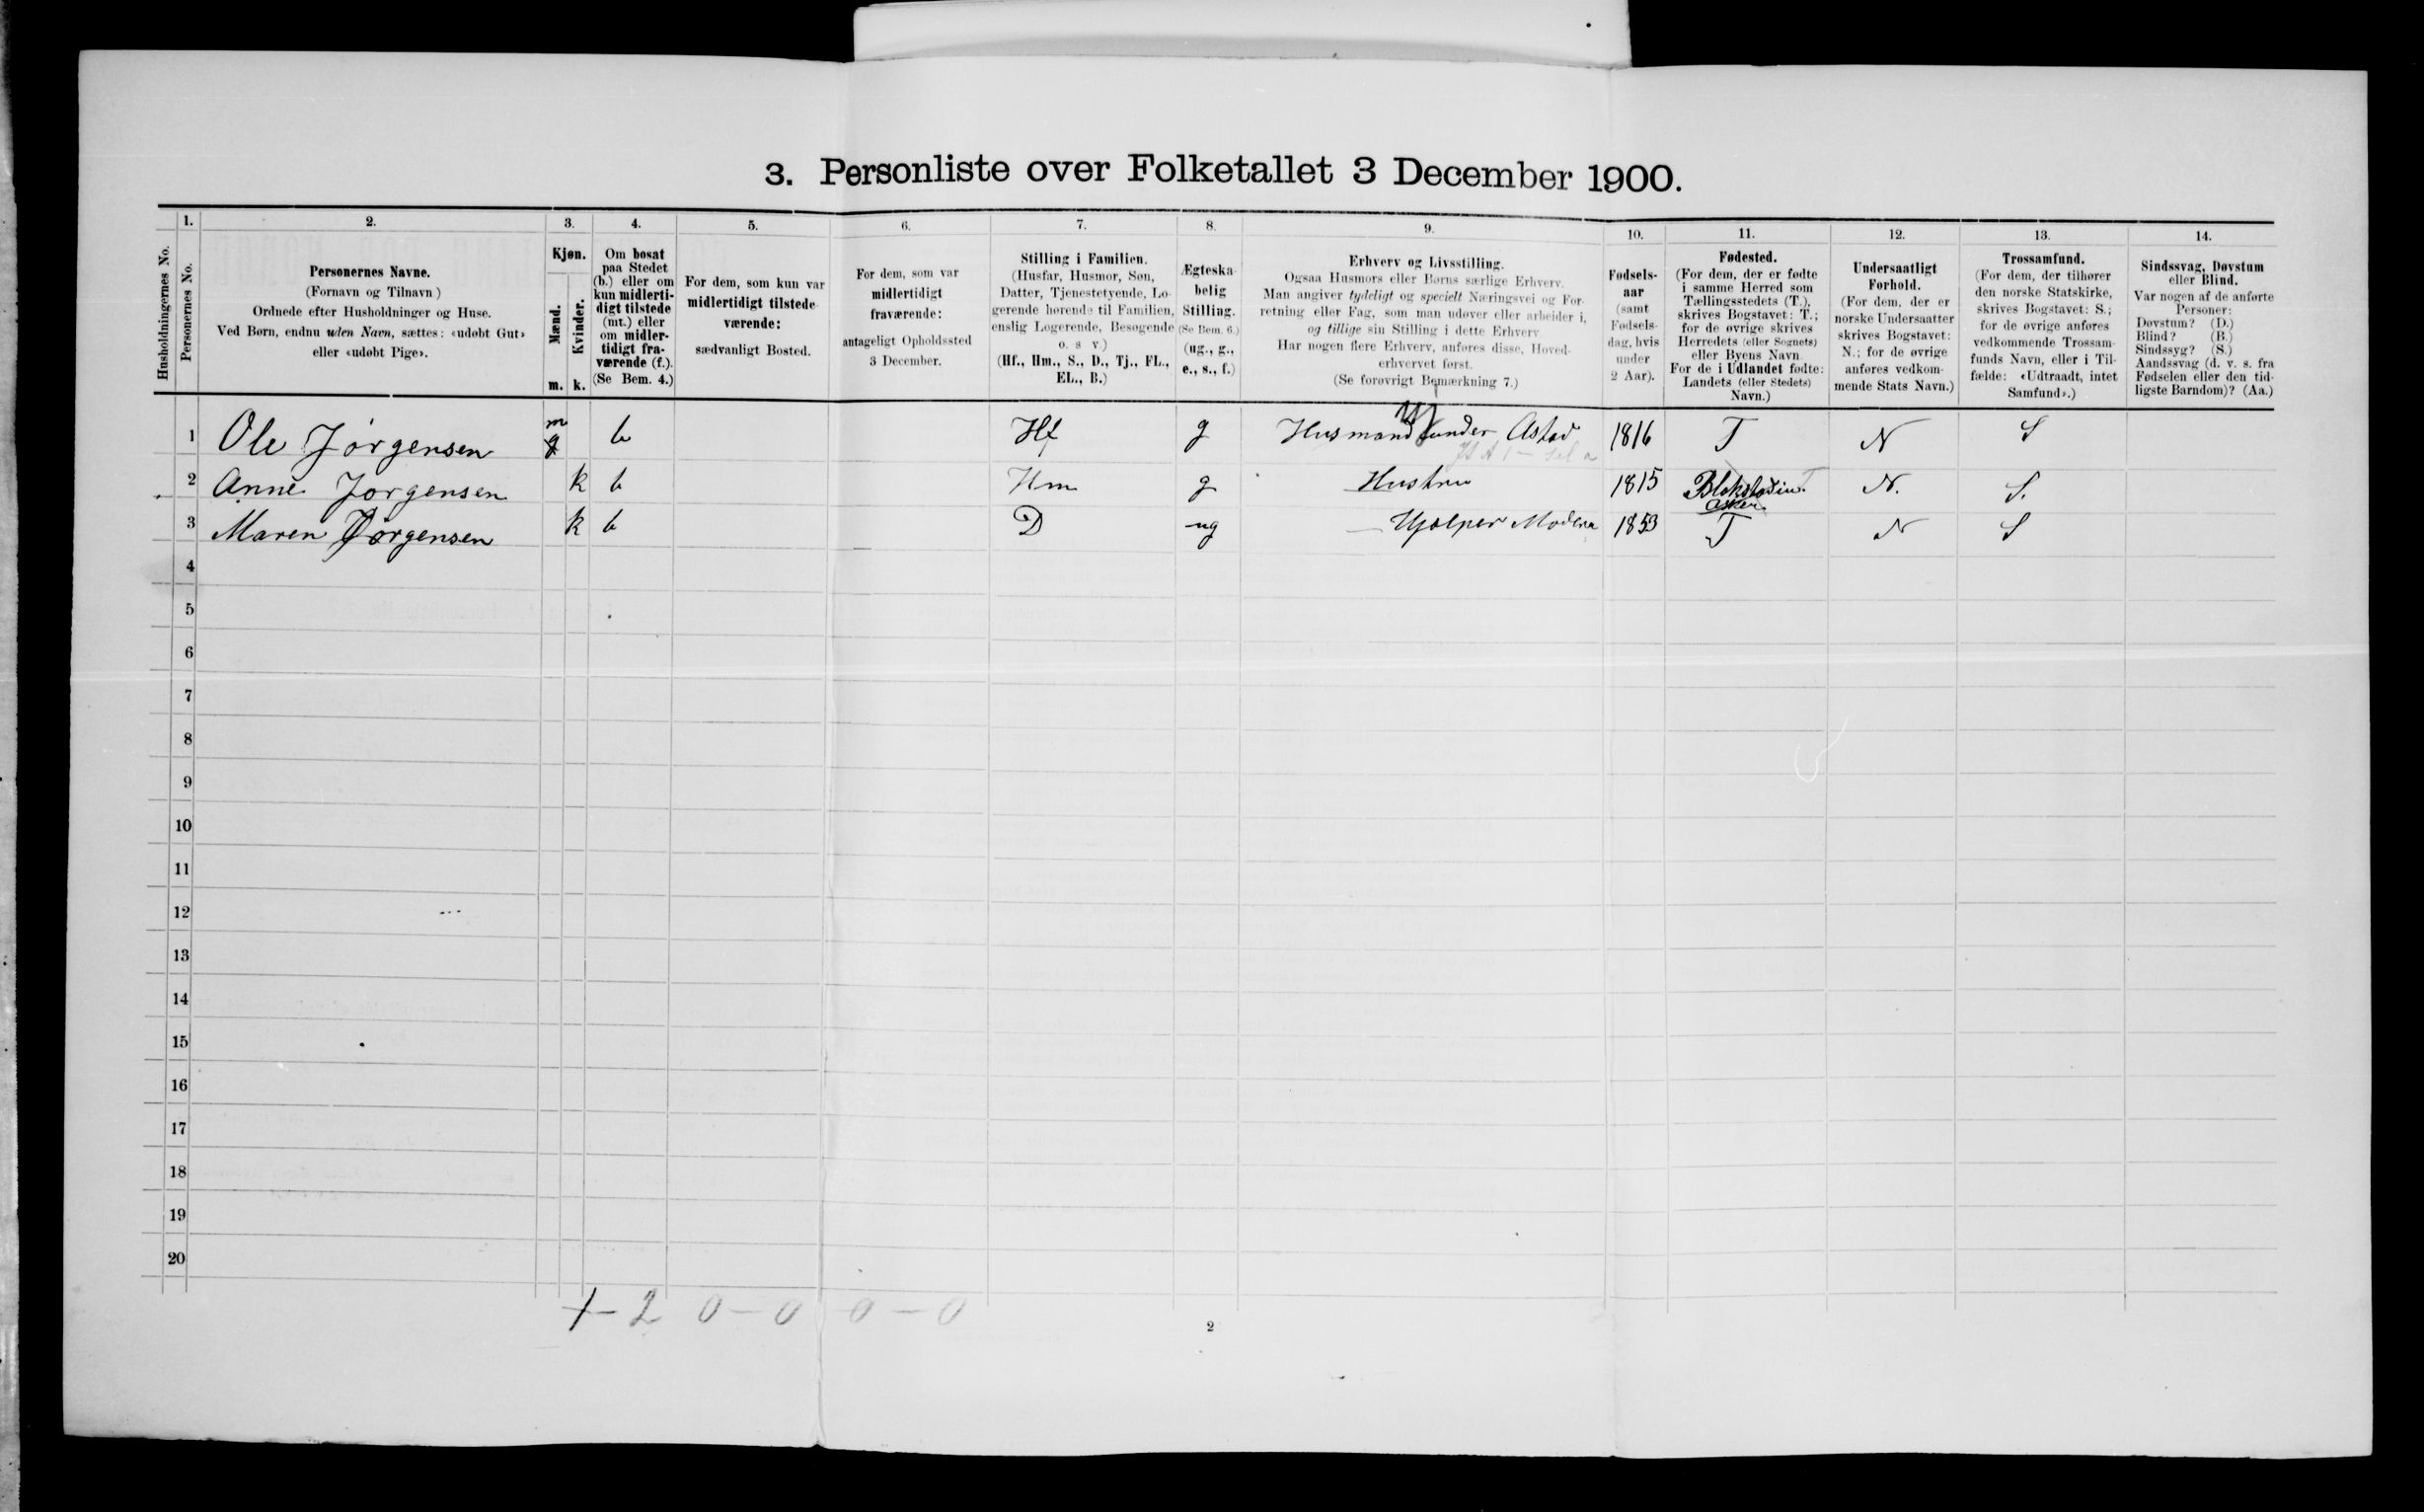 3. Personliste over Folketallet 3 December 1900.
Husholdningernes No.
1.
Personernes No.
2.
Personernes Navne.
(Fornavn og Tilnavn)
Ordnede efter Husholdninger og Huse.
Ved Børn, endnu uden Navn, sættes: «udøbt Gut»
eller «udøbt Pige».
3.
Kjøn.
Mænd.
Kvinder.
m. k.
4.
Om bosat
paa Stedet
(b.) eller om
kun midlerti-
digt tilstede
(mt.) eller
om midler-
tidigt fra-
værende (f.).
(Se Bem. 4.)
5.
For dem, som kun var
midlertidigt tilstede-
værende:
sædvanligt Bosted.
6.
For dem, som var
midlertidigt
fraværende:
antageligt Opholdssted
3 December.
7.
Stilling i Familien.
(Husfar, Husmor, Søn,
Datter, Tjenestetyende, Lo-
gerende hørende til Familien,
enslig Logerende, Besøgende
o. s. v.)
(Hf., Hm., S., D., Tj., FL.,
EL., B.)
8.
Ægteska-
belig
Stilling.
(Se Bem. 6.)
(ug., g.,
e., s., f.)
9.
Erhverv og Livsstilling.
Ogsaa Husmors eller Børns særlige Erhverv.
Man angiver tydeligt og specielt Næringsvei og For-
retning eller Fag, som man udøver eller arbeider i,
og tillige sin Stilling i dette Erhverv.
Har nogen flere Erhverv, anføres disse, Hoved-
erhvervet først.
(Se forøvrigt Bemærkning 7.)
10.
Fødsels-
aar
(samt
Fødsels-
dag, hvis
under
2 Aar).
11.
Fødested.
(For dem, der er fødte
i samme Herred som
Tællingsstedets (T.),
skrives Bogstavet: T.;
for de øvrige skrives
Herredets (eller Sognets)
eller Byens Navn.
For de i Udlandet fødte:
Landets (eller Stedets)
Navn.)
12.
Undersaatligt
Forhold.
(For dem, der er
norske Undersaatter
skrives Bogstavet:
N.; for de øvrige
anføres vedkom-
mende Stats Navn.)
13.
Trossamfund.
(For dem, der tilhører
den norske Statskirke,
skrives Bogstavet: S.;
for de øvrige anføres
vedkommende Trossam-
funds Navn, eller i Til-
fælde: «Udtraadt, intet
Samfund».)
14.
Sindssvag, Døvstum
eller Blind.
Var nogen af de anførte
Personer:
Døvstum? (D.)
Blind? (B.)
Sindssyg? (S.)
Aandssvag (d. v. s. fra
Fødselen eller den tid-
ligste Barndom)? (Aa.)
1 Ole Jørgensen m b Hf g Husmand under Astad 1816 T N S
2 Anne Jorgensen k b Hm g Hustru 1815 Asker N. S.
3 Maren Jørgensen k b D ug Hjælper Modern 1853 T N S
4
5
6
7
8
9
10
11
12
13
14
15
16
17
18
19
20
1 - 2 0 - 0 0 - 0
2